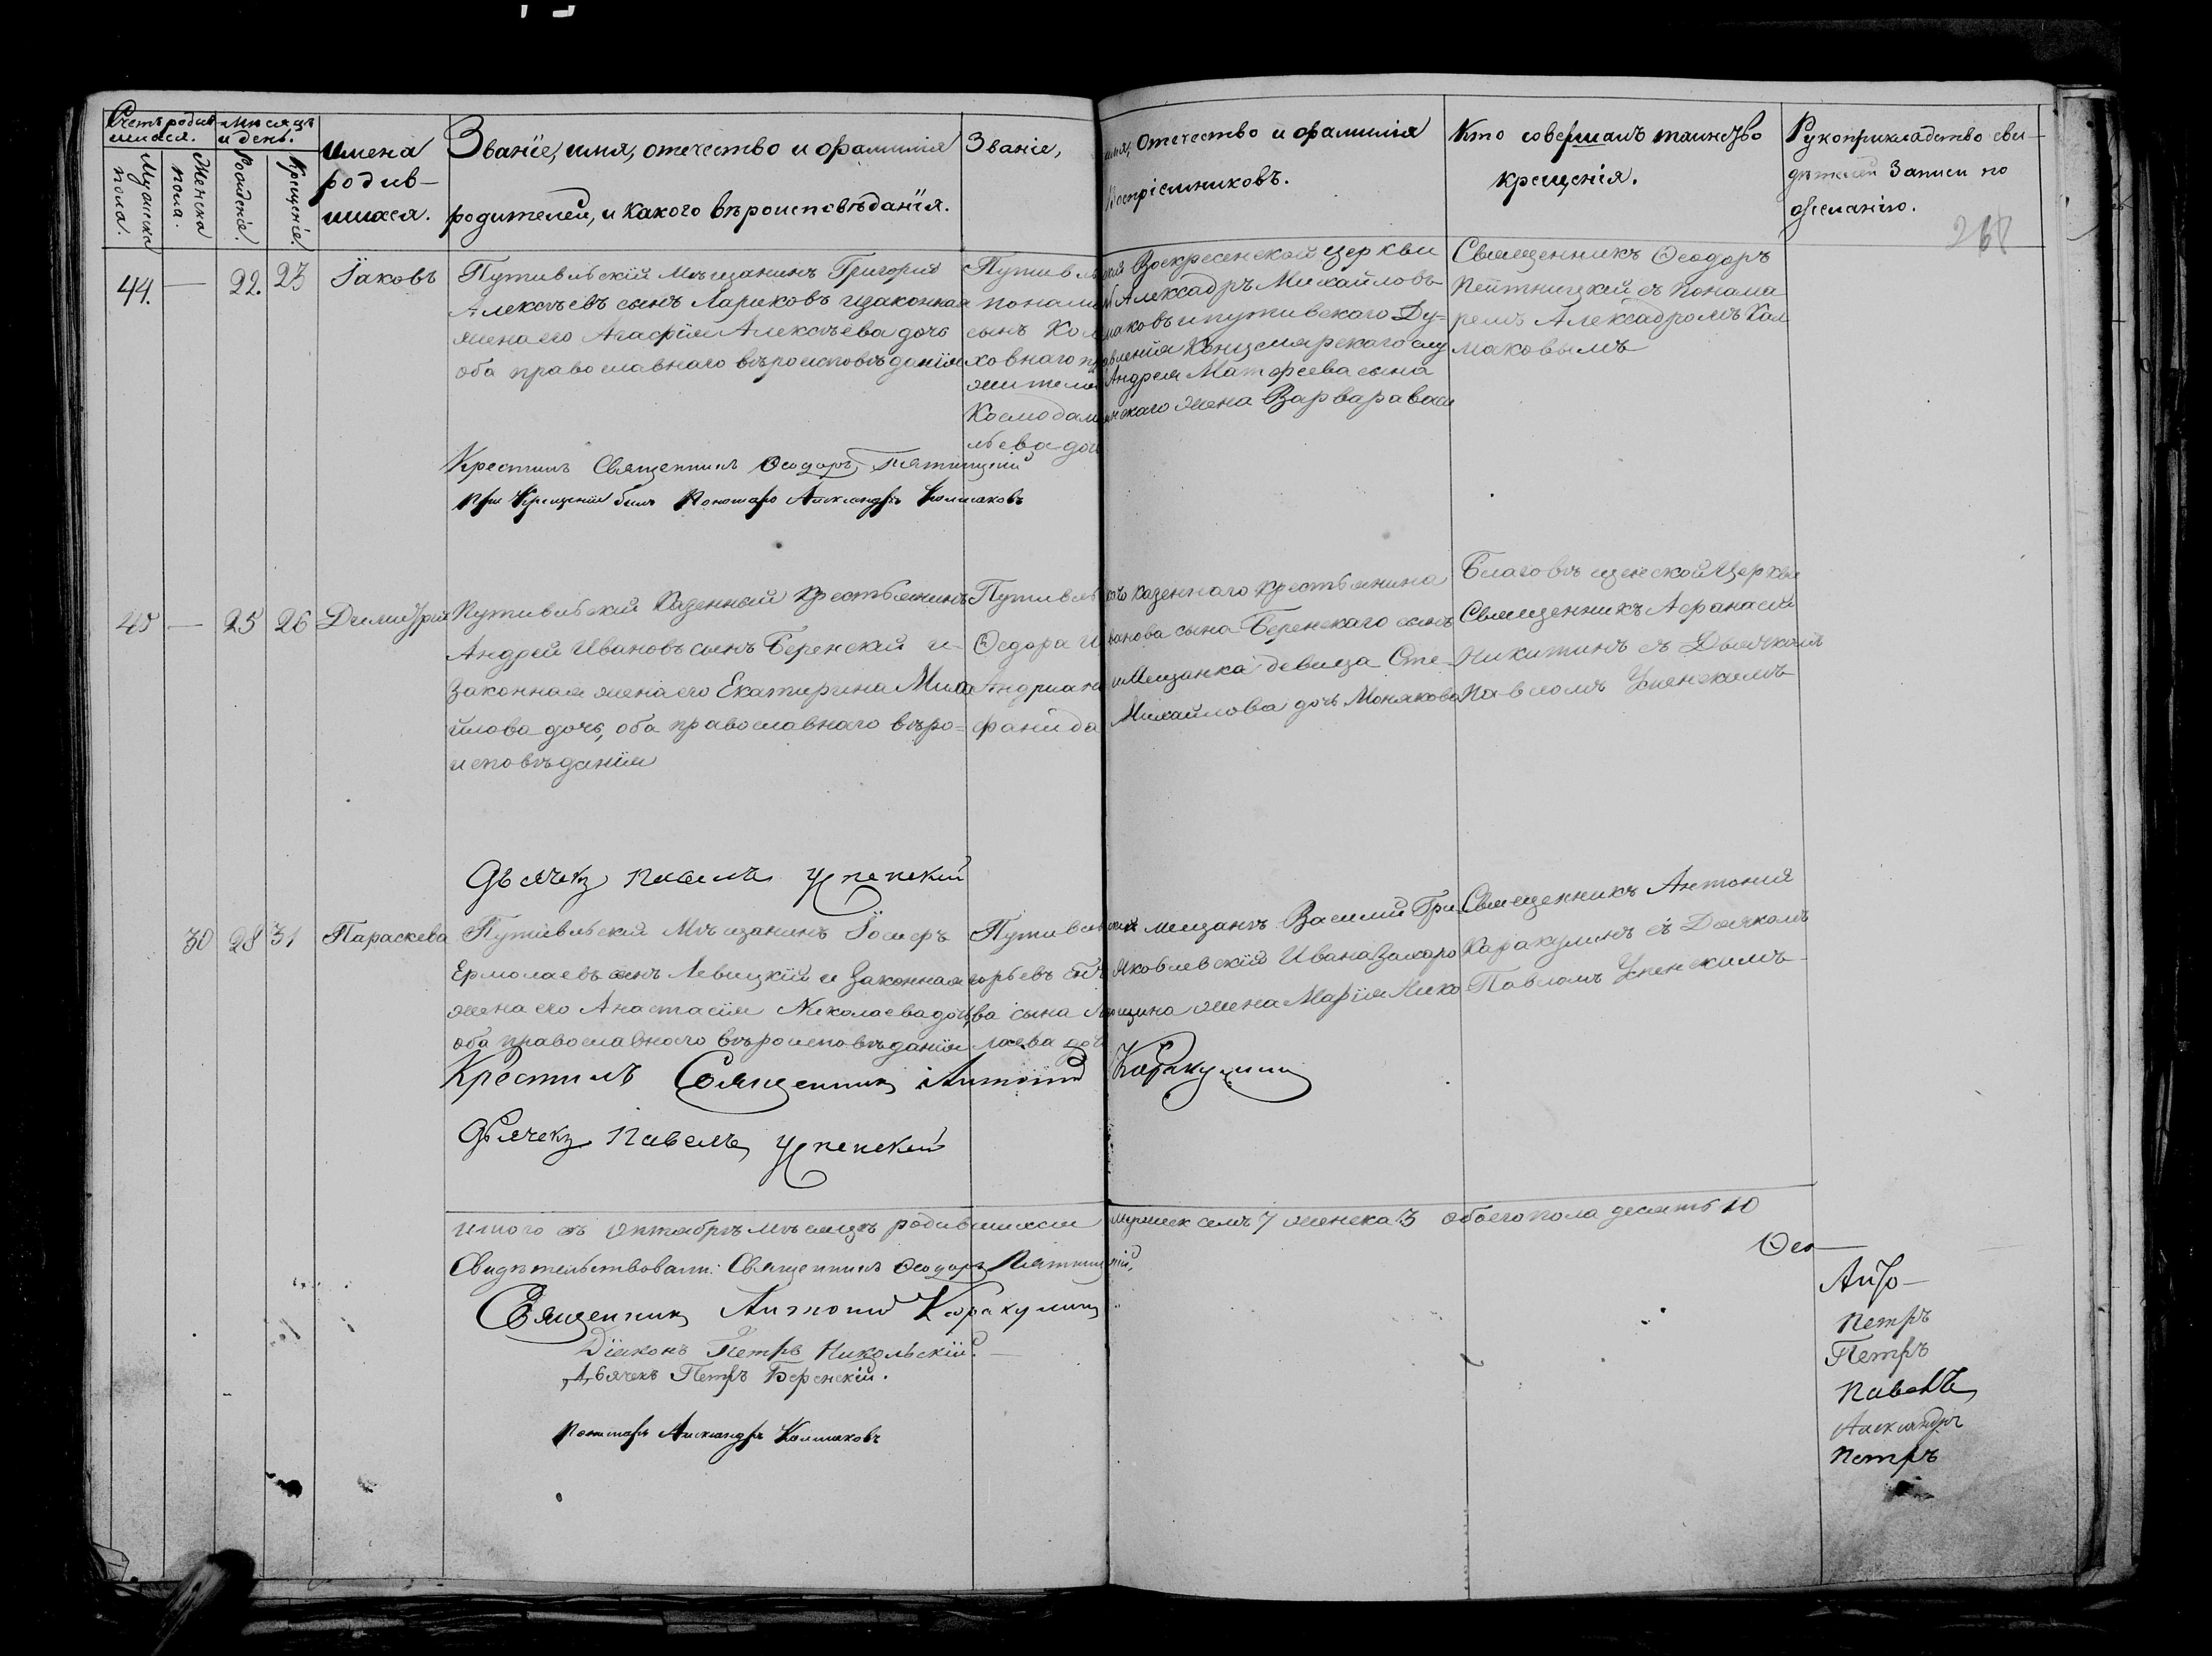 Счетъ родив
шихся.
Мѣсяцъ
и день.
Мужеска
пола.
Женска
пола.
Рожденіе.
Крещеніе.
Имена
родив-
шихся.
Званіе, имя, отечество и фамилія
родителей, и какого вѣроисповѣданія.
Званіе, имя, отечество и фамилія
Воспріемниковъ.
Кто совершалъ таинство
крещенія.
Рукоприкладство сви-
дѣтелей Записи по
желанію.
44. — 22. 23 Іаковъ
Путивльскій Мѣщанинъ Григорій
Алексѣевъ сынъ Лариковъ изаконная
жена его Агафія Алексѣева дочь
оба православнаго вѣроисповѣданія
Путивльской Воскресенской церкви
понамарь Александръ Михайловъ
сынъ Колмаковъ ипутивскаго Ду-
ховнаго правленія Канцелярскаго слу
жителя Андрея Матфеева сына
Космодамианскаго жена Варвара Васи
льева дочь
Священникъ Ѳеодоръ
Пятницкій съ понама
ремъ Александромъ Кол
маковымъ
Крестилъ Священникъ Ѳеодоръ Пятницкій
При крещеніи былъ Пономарь Александръ Колмаковъ
45 — 25 26 Димитрій
Путивльскій Казенный крестьянинъ
Андрей Ивановъ сынъ Беренскій и
Законная жена его Екатерина Миха
йлова дочь, оба православнаго вѣро=
исповѣданія
Путивльскаго казеннаго крестьянина
Ѳедора Иванова сына Беренскаго сынъ
Андриан и Мещанка девица Сте-
фанида Михайлова дочь Монякова
Благовѣщенской Церкви
Священникъ Афанасій
Никитинъ съ Дьячкомъ
Павломъ Успенскимъ
Дьячекъ Павелъ Успенскій
30 28 31 Параскева
Путивльскій Мѣщанинъ Іосифъ
Ермолаевъ сынъ Левицкій и Законная
жена его Анастасія Николаева дочь,
оба православнаго вѣроисповѣданія
Путивльскій мещанъ Василий Гри
горьевъ Яковлевскій Ивана Захаро
ва сына жена Марія Нико
лаева дочь
Священникъ Антоній
Каракулинъ съ Дьячкомъ
Павломъ Успенскимъ
Крестилъ Священникъ Антоній Каракулинъ
Дьячекъ Павелъ Успенскій
Итого въ Октябрѣ мѣсяцѣ родившихся мужеск семь 7 женска 3 обоего пола десять 10
Свидѣтельствовали: Священникъ Ѳеодоръ Пятницкій,
Священникъ Антоній Каракулинъ
Діаконъ Петръ Никольскій.
Дьячекъ Петръ Беренскій.
Пономарь Александръ Колмаковъ
Ѳео—
Анто—
Петръ
Петръ
Павелъ
Александръ
Петръ